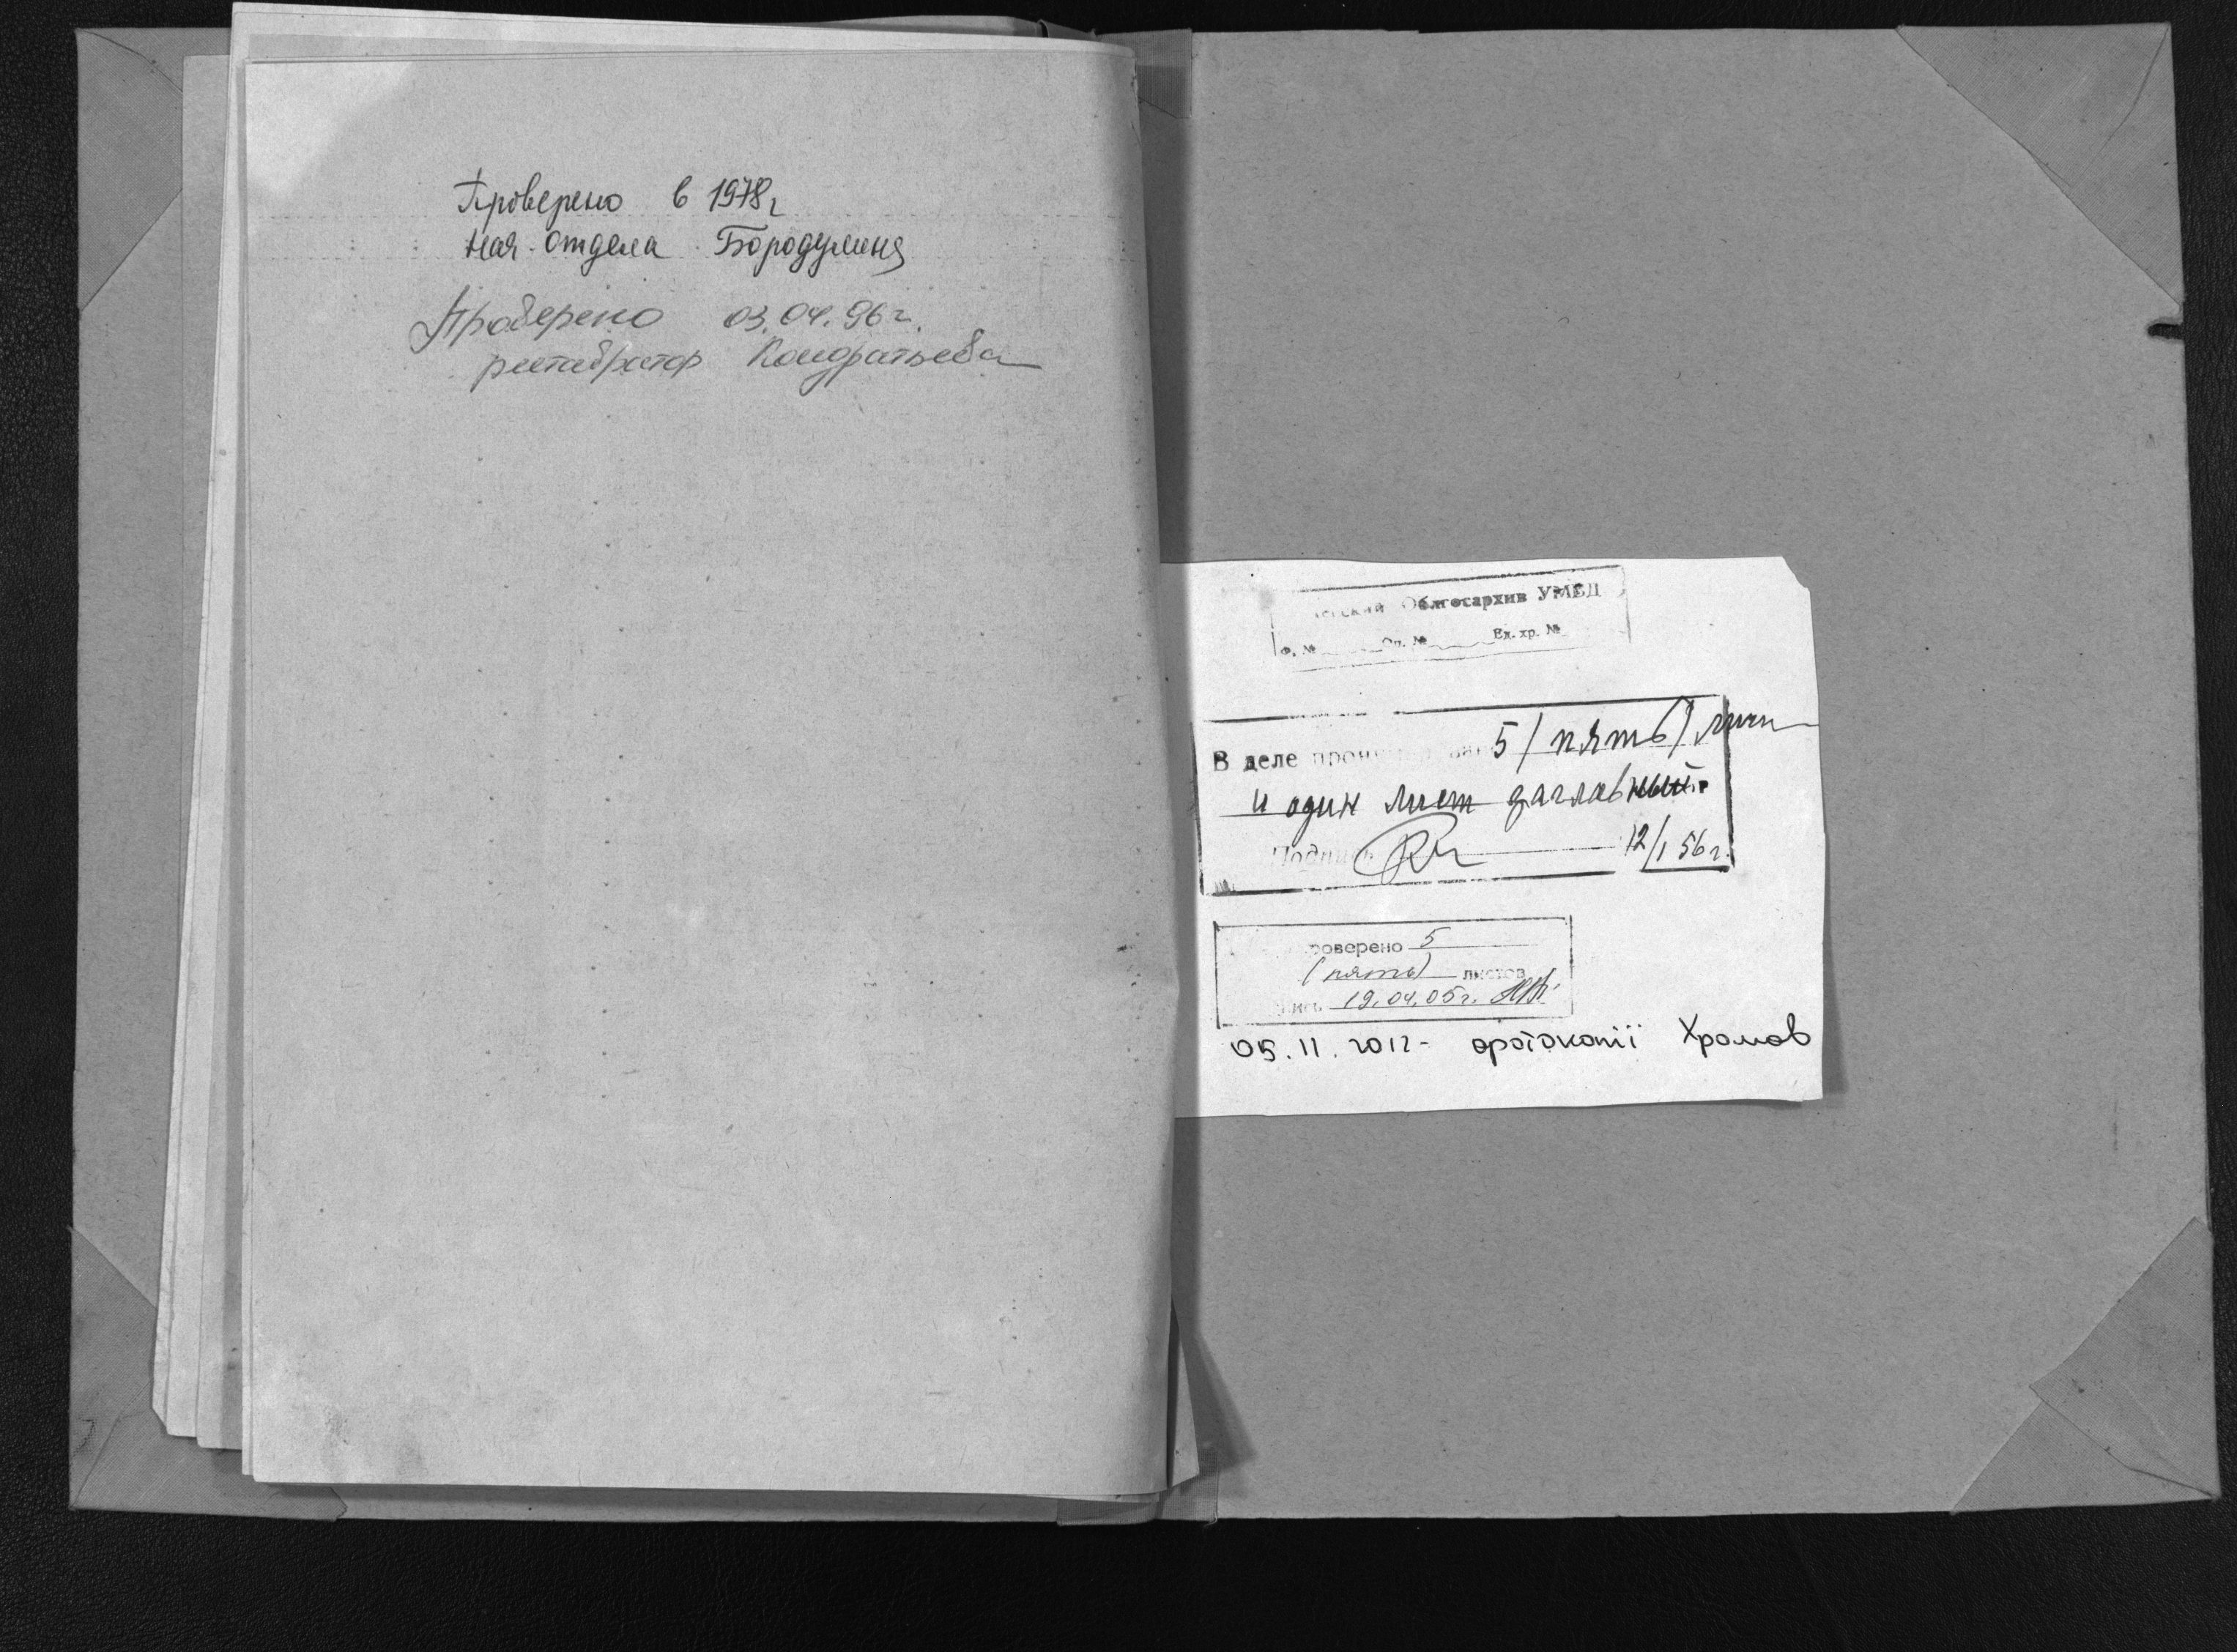 Проверено в 1978г
нач. отдела Бородулина
Проверено 03.04.96г.
реставратор Кондратьева
Облгосархив УМВД
Ф. № Оп. № Ед. хр. №
В деле 5 / пять /
и один лист заглавный.
12/I 56г.
5
(пять) листов
19.04.05г.
05.11.2012- фотокопії Хромов